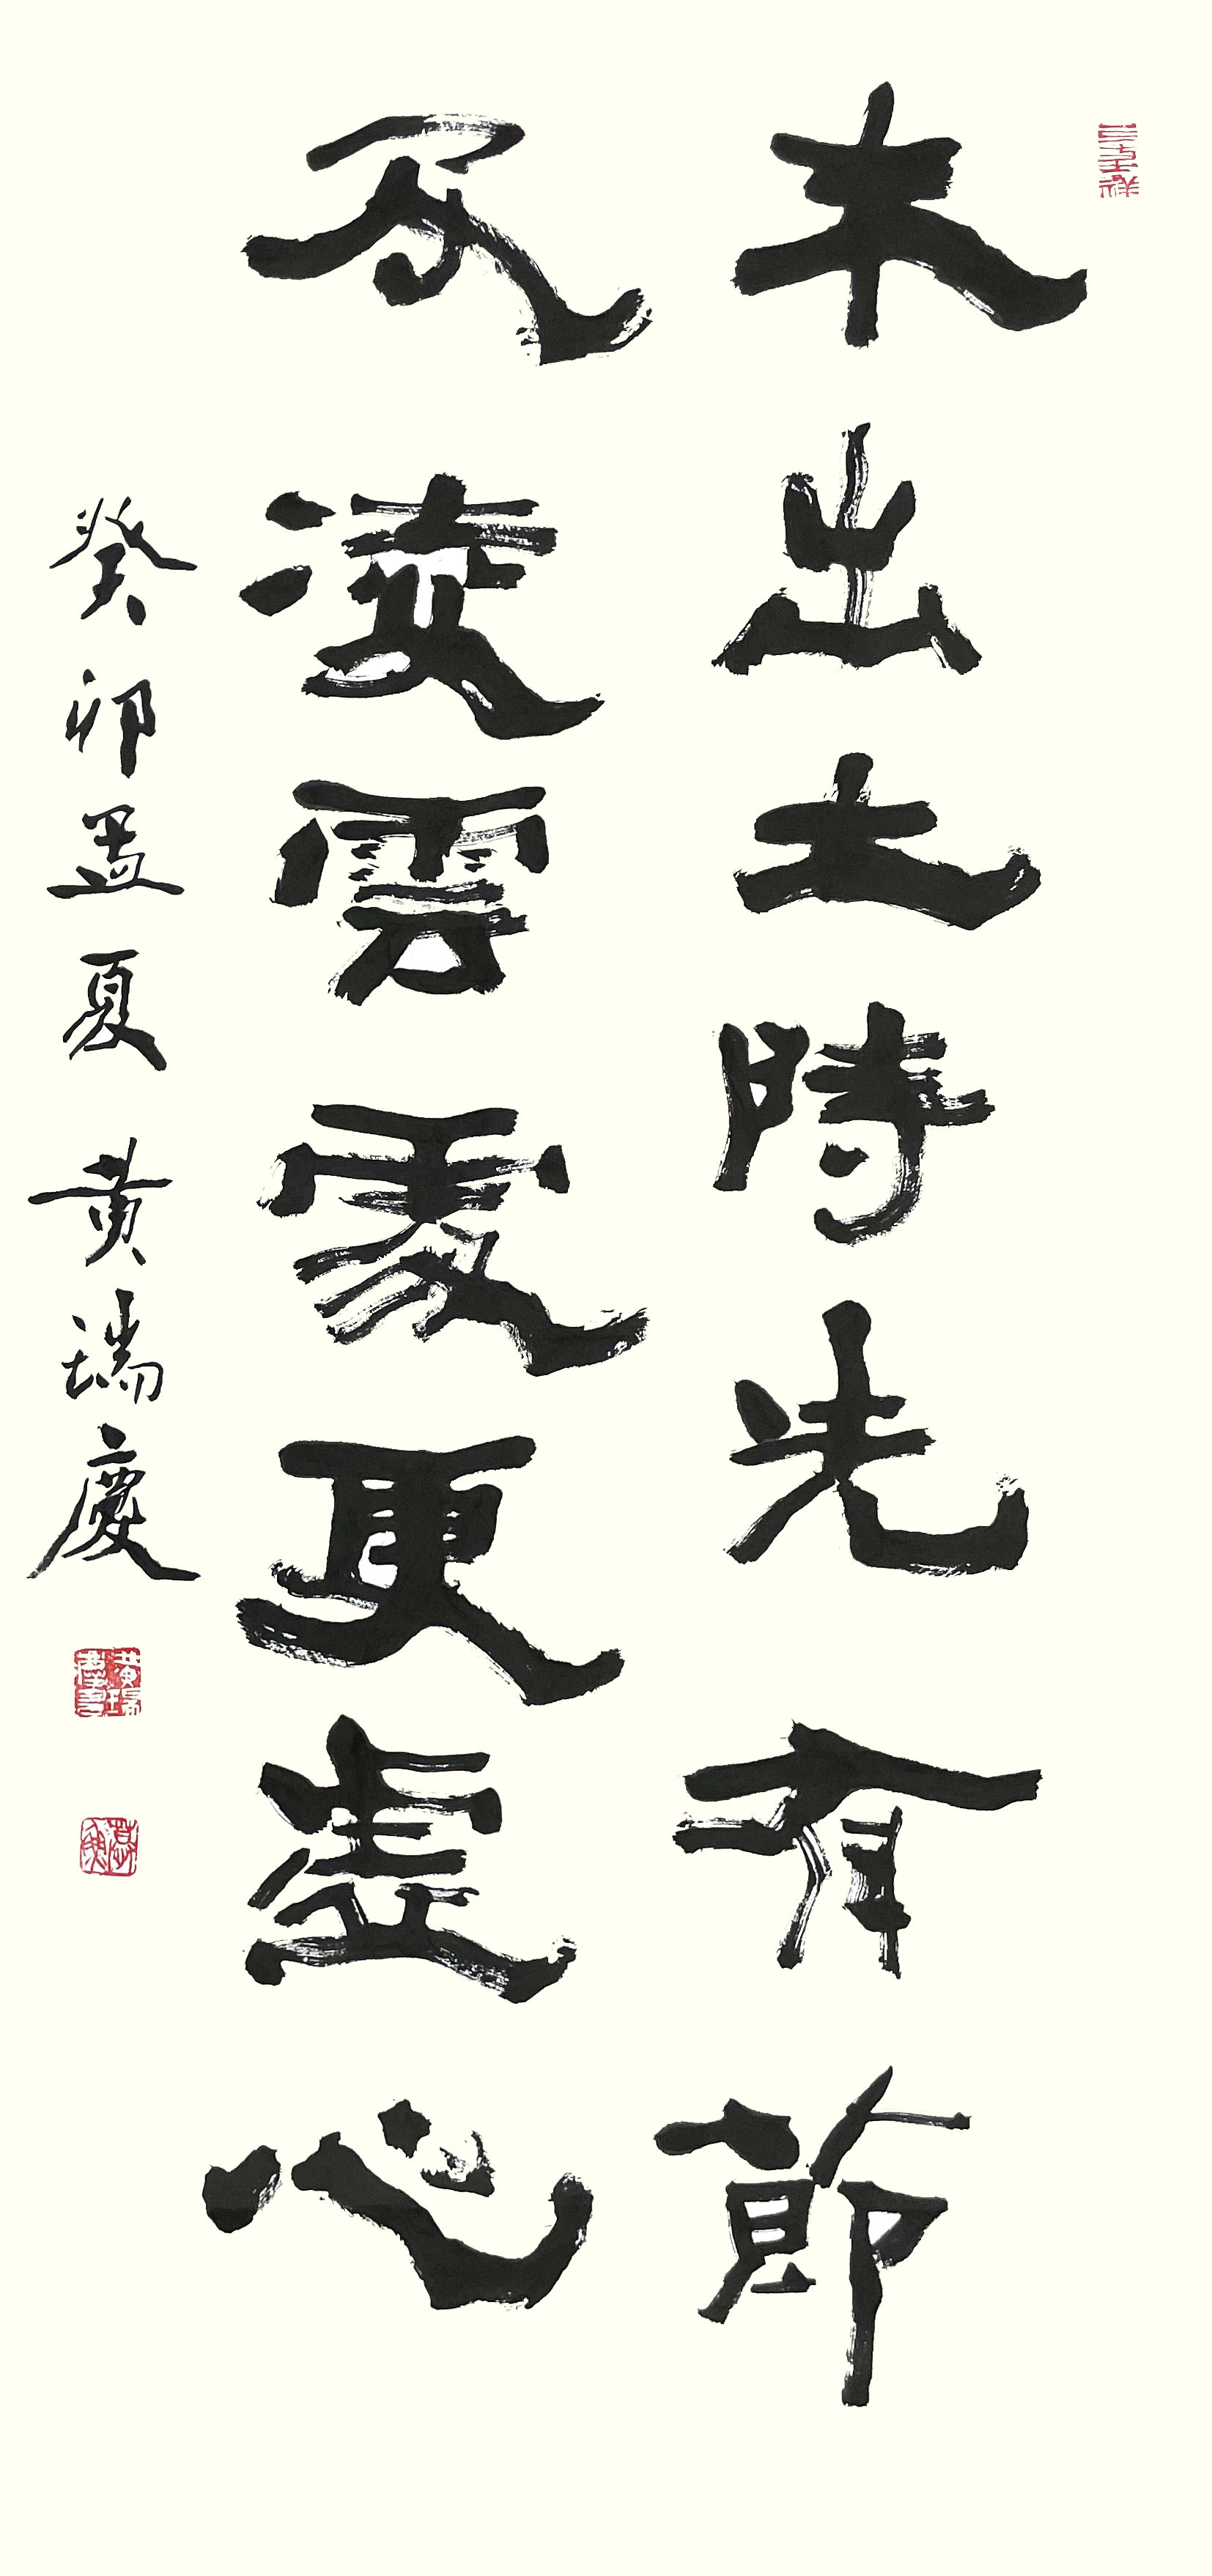 未出土時先有節
及凌雲處更虛心
癸卯孟夏 黄瑞慶